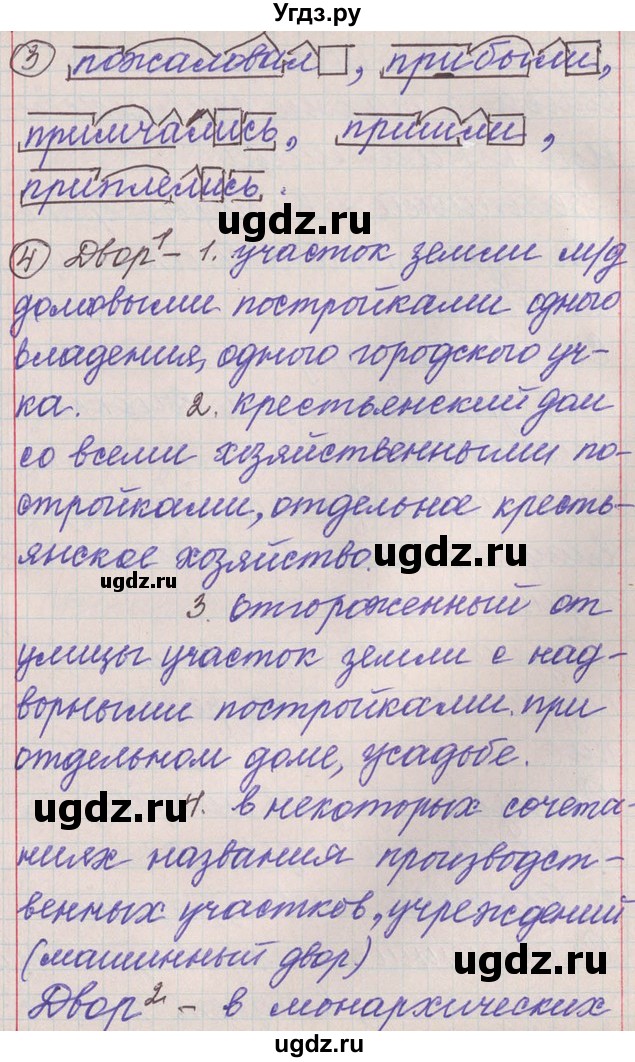 Угдз.ру
3 пожаловал, прибыли,
примчались, пришли,
приплелись.
ugdz.ru
4 Двор¹ – 1. участок земли м/д
домовыми постройками одного
владения, одного городского уч-
ка. 2. крестьянский дом
со всеми хозяйственными по-
стройками, отдельное кресть-
янское хозяйство.
ugdz.ru
ugdz.ru
3. отгороженный от
улицы участок земли с над-
ворными постройками при
отдельном доме, усадьбе.
ugdz.ru
4. в некоторых сочета-
ниях названия производст-
венных участков, учреждений
(машинный двор)
ugdz.ru
Двор² – в монархических
ugdz.ru